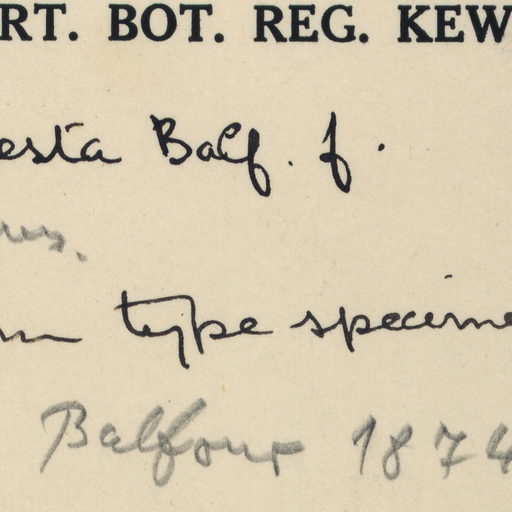 RT. BOT. REG. KEW
esta Balf. f.
type specime
Balfour 1874